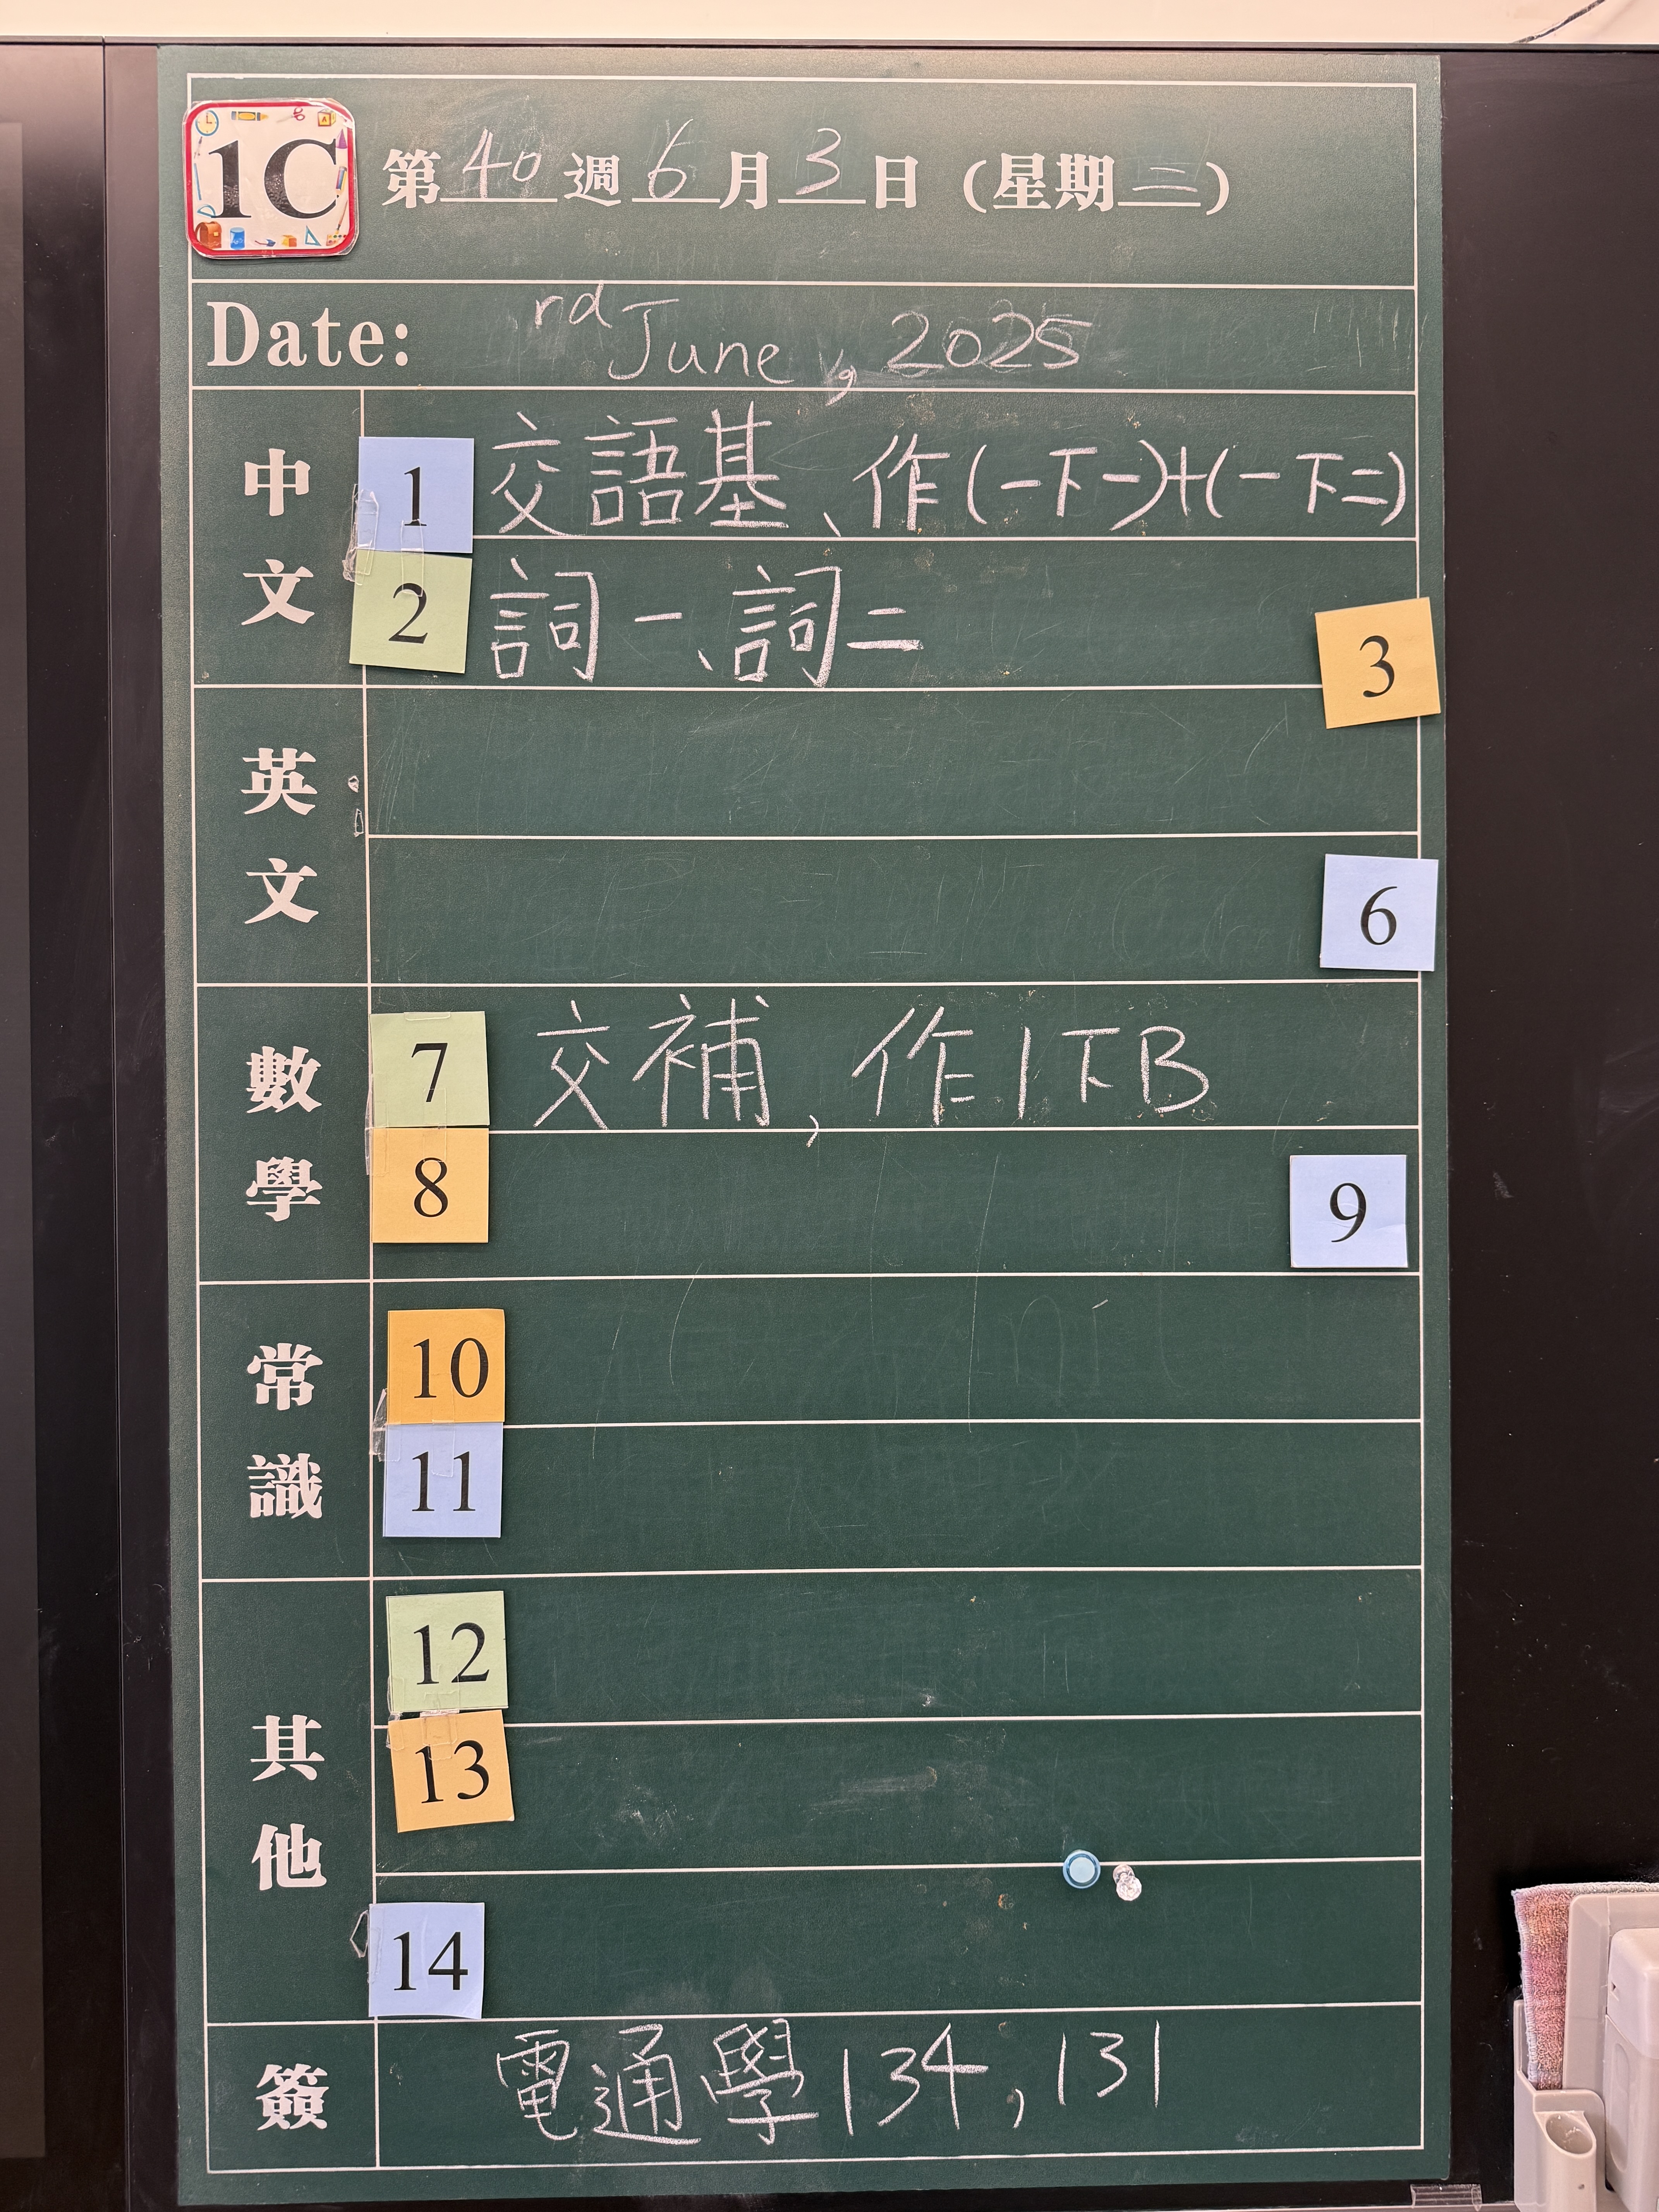 1C 第40週6月3日 (星期二)
Date: rd June, 2025
中文
1 交語基、作(一下一)+(一下二)
2 詞一、詞二
3
英文
6
數學
7 交補, 作1下B
8
9
常識
10
11
其他
12
13
14
簽 電通學134, 131